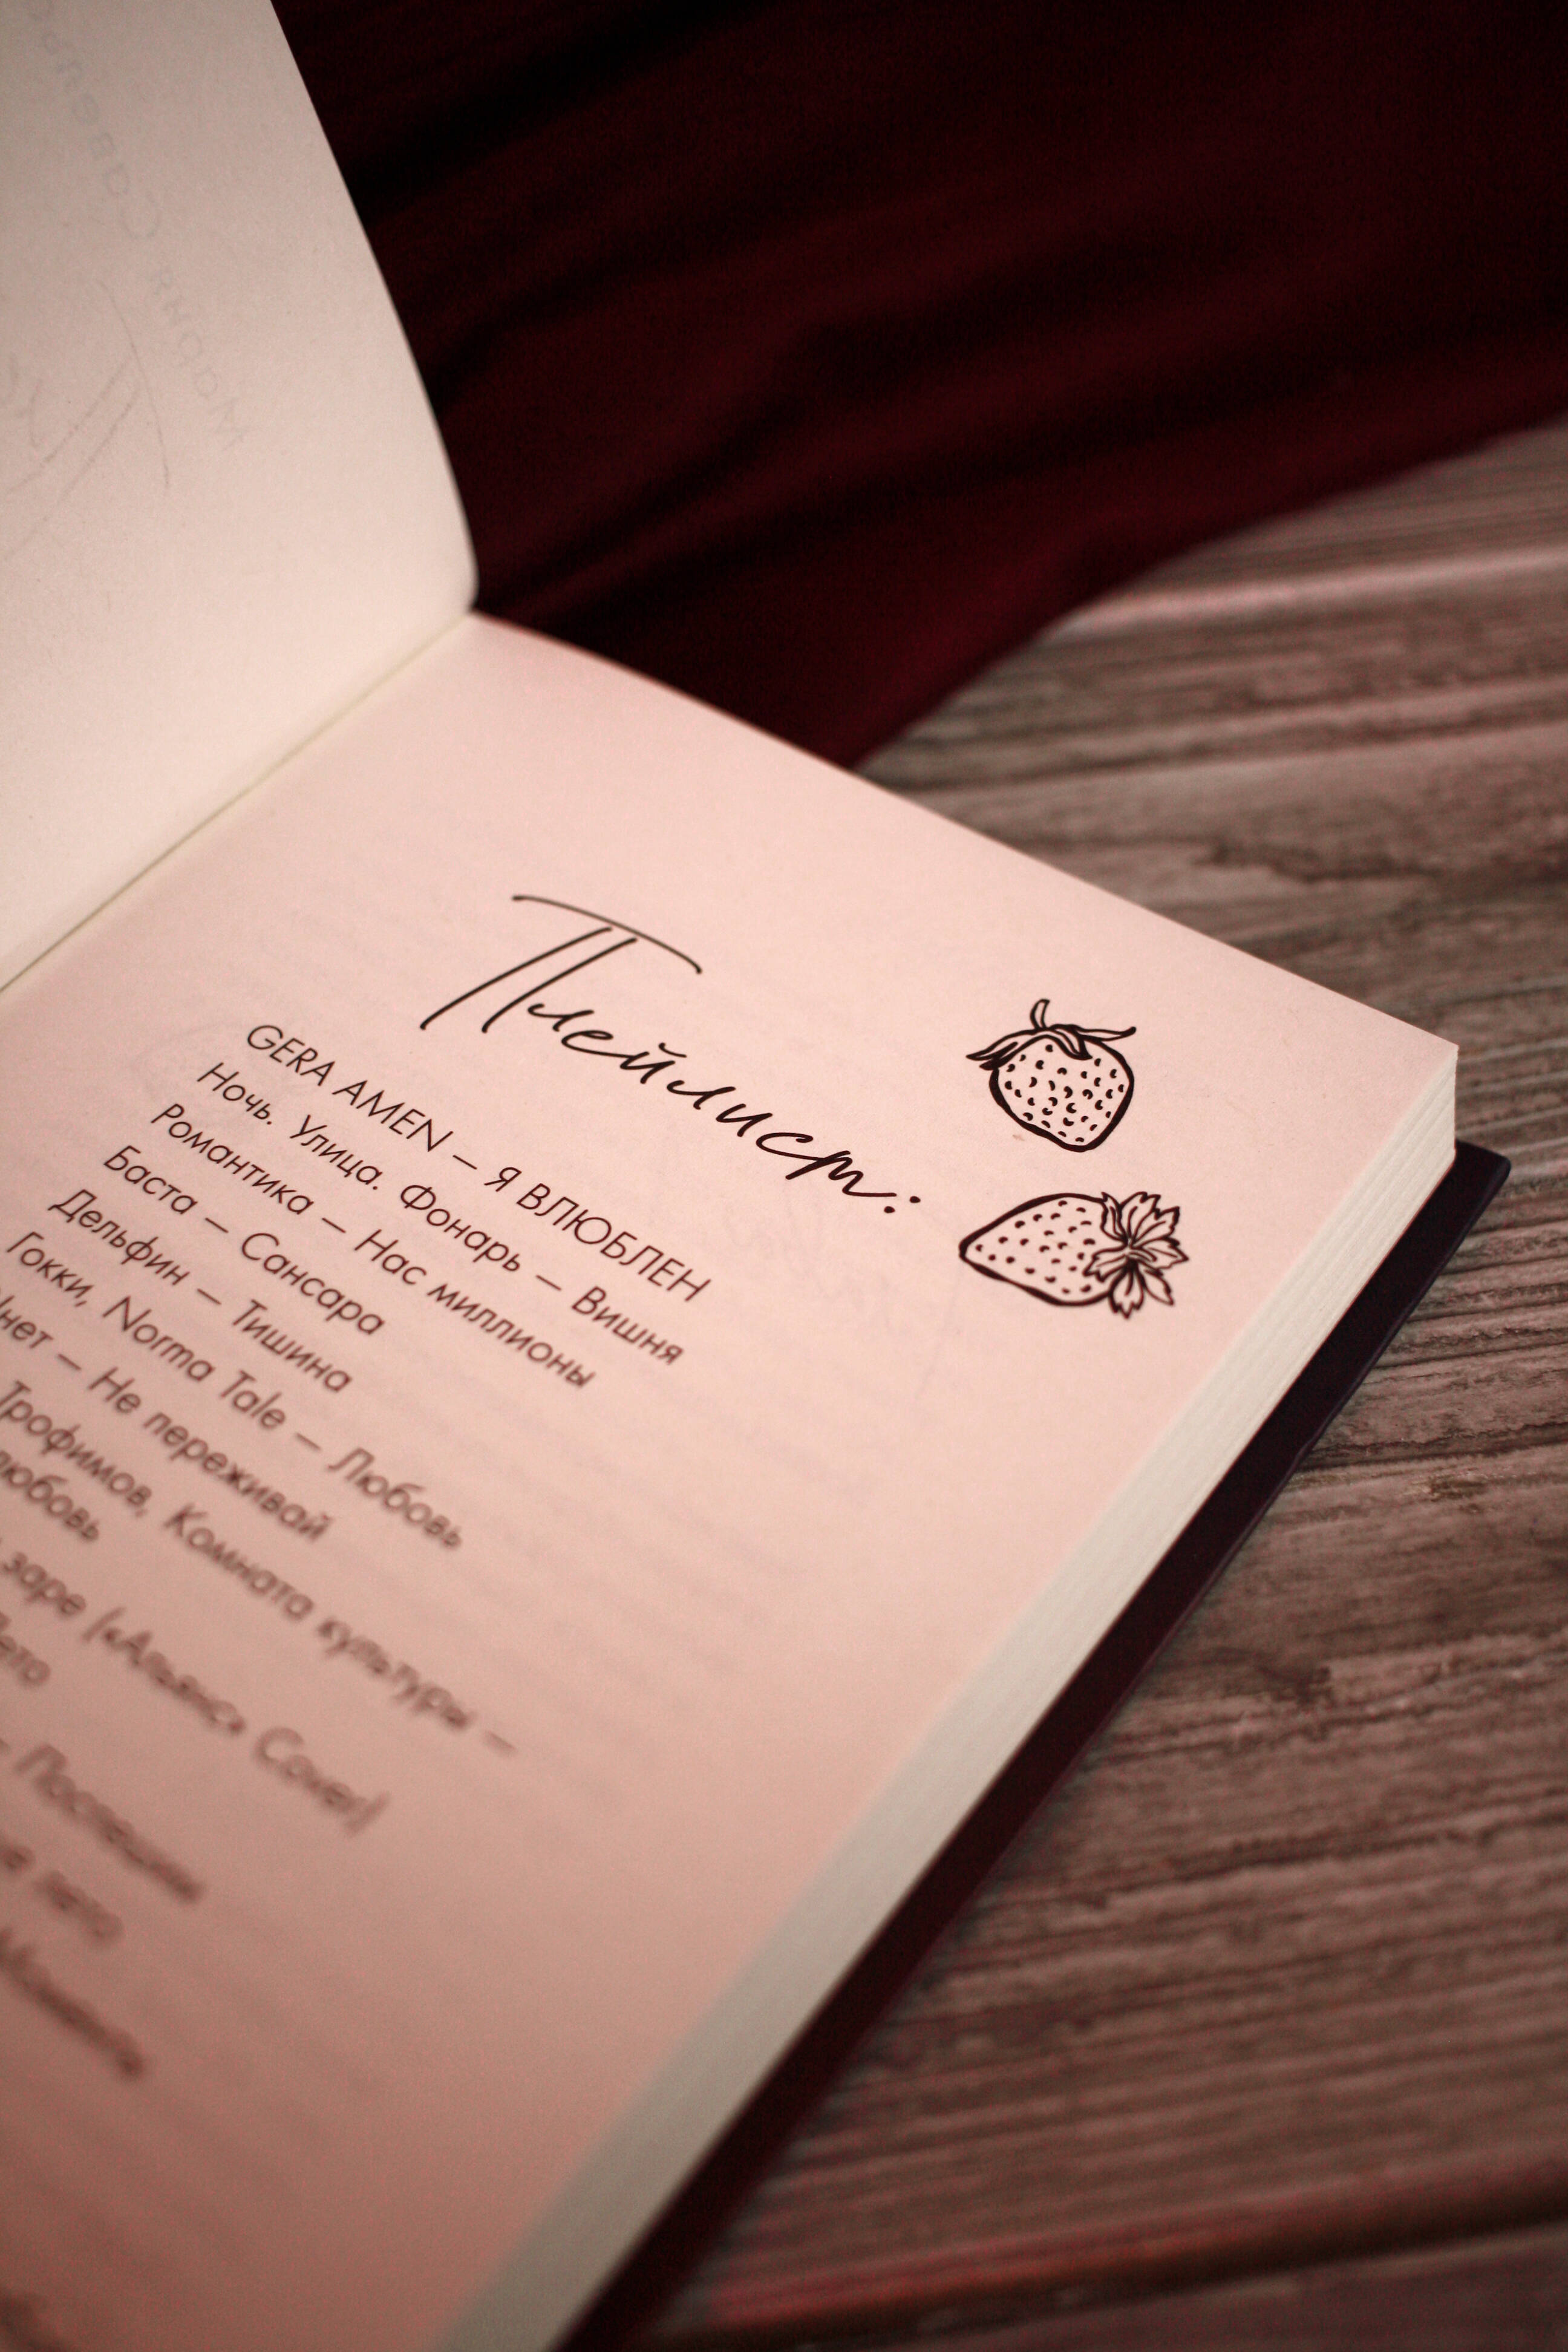 Плейлист:
GERA AMEN – Я ВЛЮБЛЕН
Ночь. Улица. Фонарь – Вишня
Романтика – Нас миллионы
Баста – Сансара
Дельфин – Тишина
Гокки, Norma Tale – Любовь
– Не переживай
Трофимов, Комната культуры –
любовь
заре («Альянс» Cover)
Лето
– Посвящение
лето